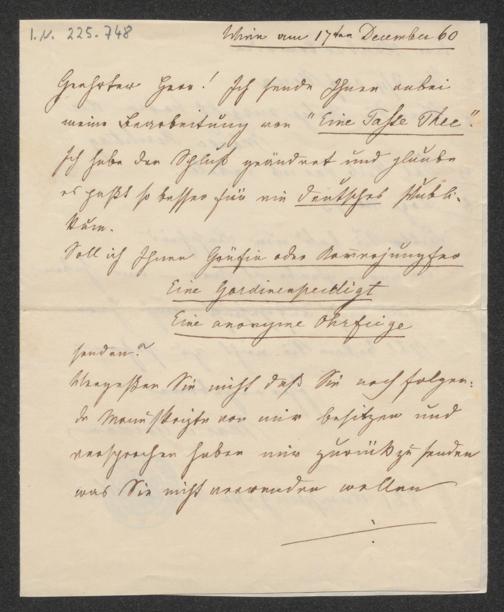 I.N. 225.748
Wien am 17ten December 60
Geehrter Herr! Ich sende Ihnen anbei
meine Bearbeitung von "Eine Tasse Thee".
Ich habe den Schluß geändert und glaube
es paßt so besser für ein deutsches Publi-
kum.
Soll ich Ihnen Gräfin oder
Eine Gardinenpredigt
Eine anonyme Ohrfeige
senden?
Vergeßen Sie nicht daß Sie noch folgen-
de Manuskripte von mir besitzen und
versprochen haben mir zurück zu senden
was Sie nicht verwenden wollen